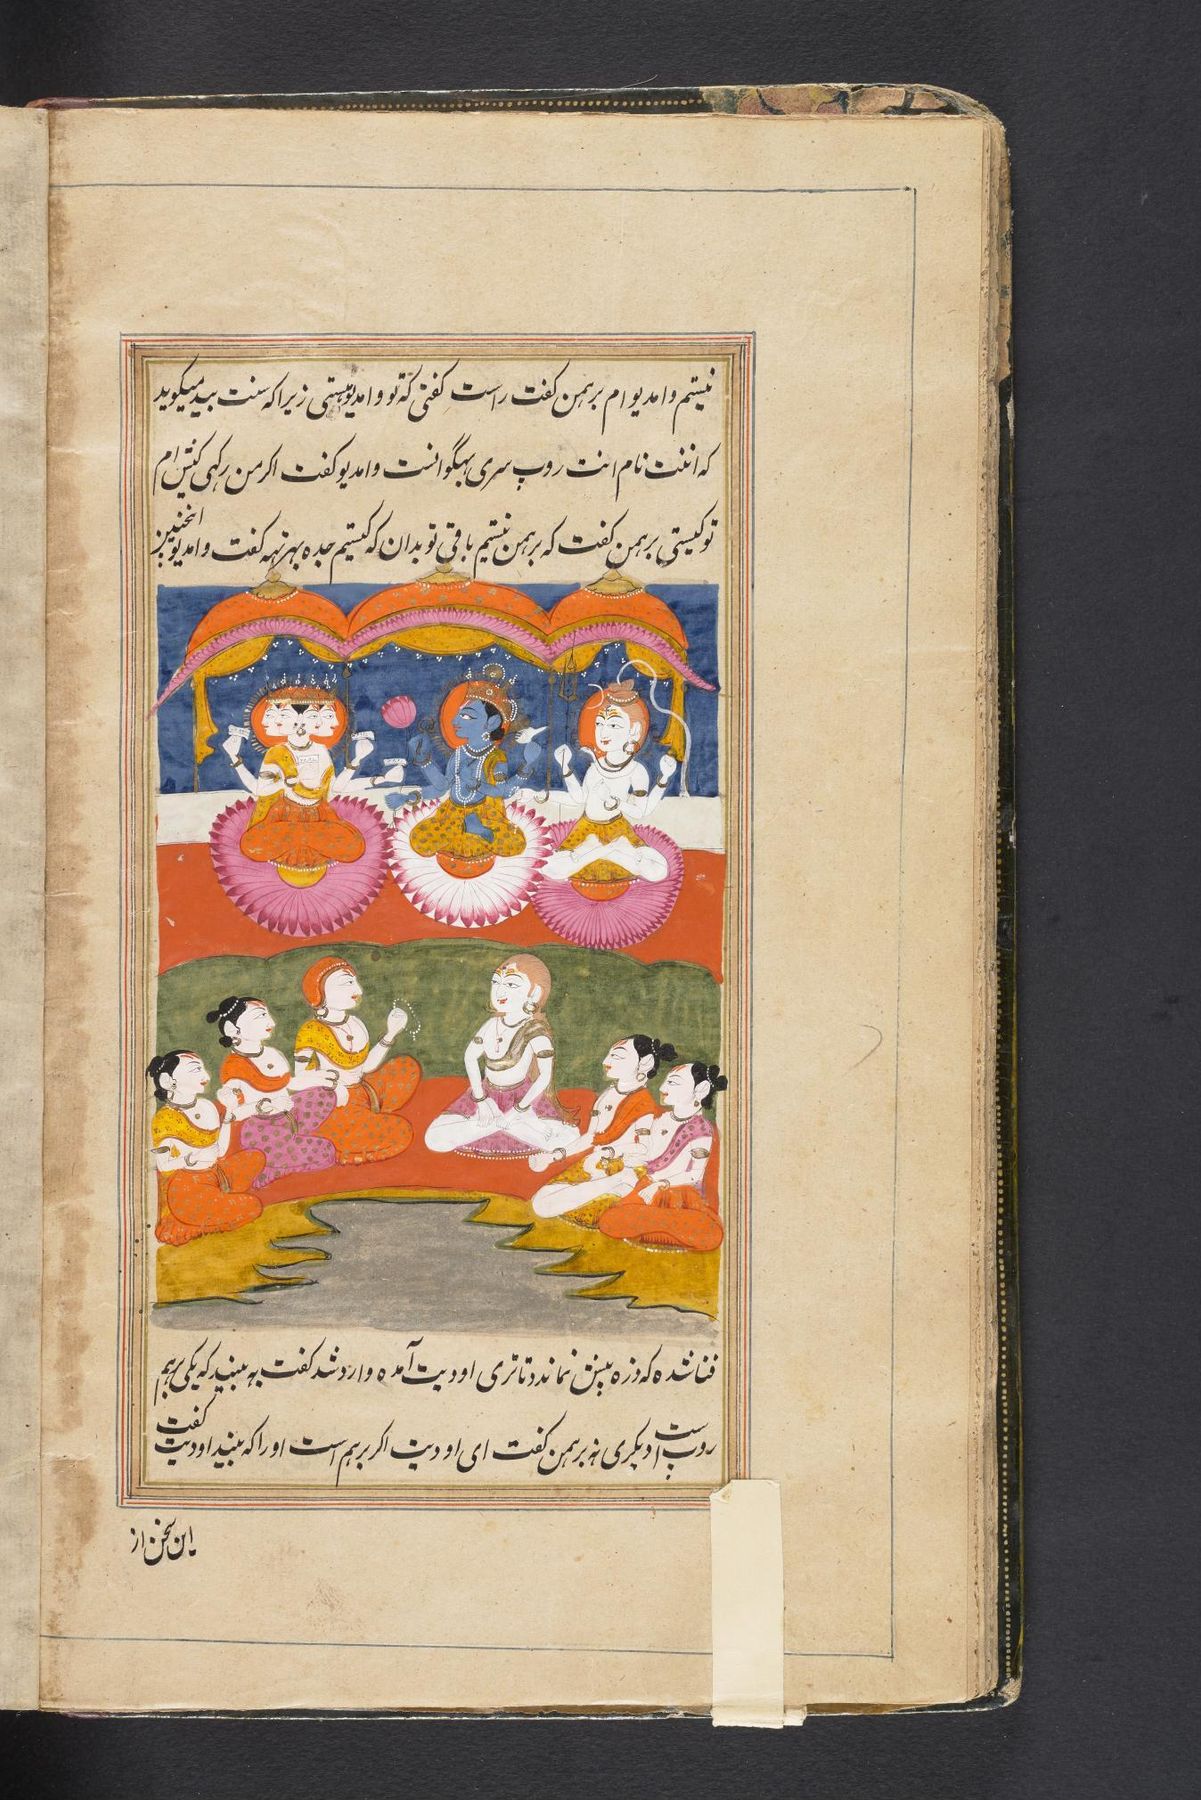 نیستم وامدیو ام برهمن گفت راست گفتی که تو وامدیو هستی زیرا که سنت بید میگوید
که اننت نام اننت روپ سری بهگوانست وامدیو گفت اگر من رکهی کیش ام
تو کیستی برهمن گفت که برهمن نیستم باقی تو بدان که کیستم جده بهرتهه گفت وامدیو اینچنین
فنا شده که ذره بینش نماند دتاتری اودیت آمده وارد شد گفت به بینید که یکی برهم
روپ است دیگری نه برهمن گفت ای اودیت اگر برهم است او را که بیند اودیت گفت
این سخن از